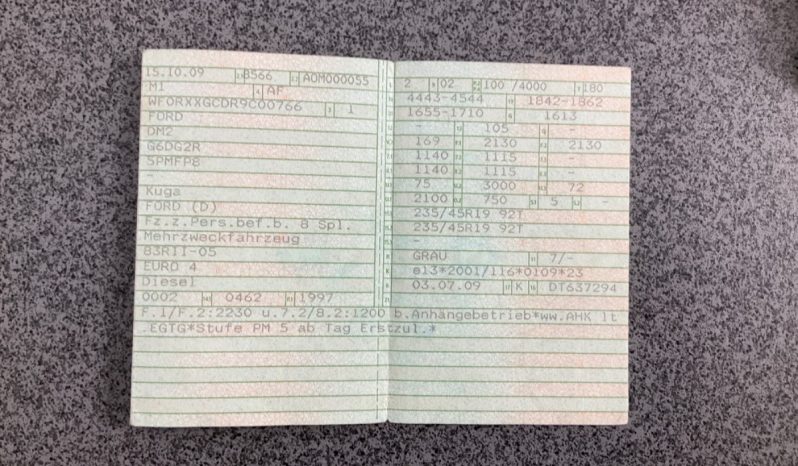 15.10.09 8566 AOM000055
M1 AF
WFORXXGCDR9C00766 1
FORD
DM2
G6DG2R
5PMFP8
-
Kuga
FORD (D)
Fz.z.Pers.bef.b. 8 Spl.
Mehrzweckfahrzeug
83RII-05
EURO 4
Diesel
0002 0462 1997
2 02 100 /4000 180
4443-4544 1842-1862
1655-1710 1613
- 105 -
169 2130 2130
1140 1115 -
1140 1115 -
75 3000 72
2100 750 5 -
235/45R19 92T
235/45R19 92T
-
GRAU 7/-
e13*2001/116*0109*23
03.07.09 K DT637294
F.1/F.2:2230 u.7.2/8.2:1200 b.Anhängebetrieb*ww.AHK lt
.EGTG*Stufe PM 5 ab Tag Erstzul.*